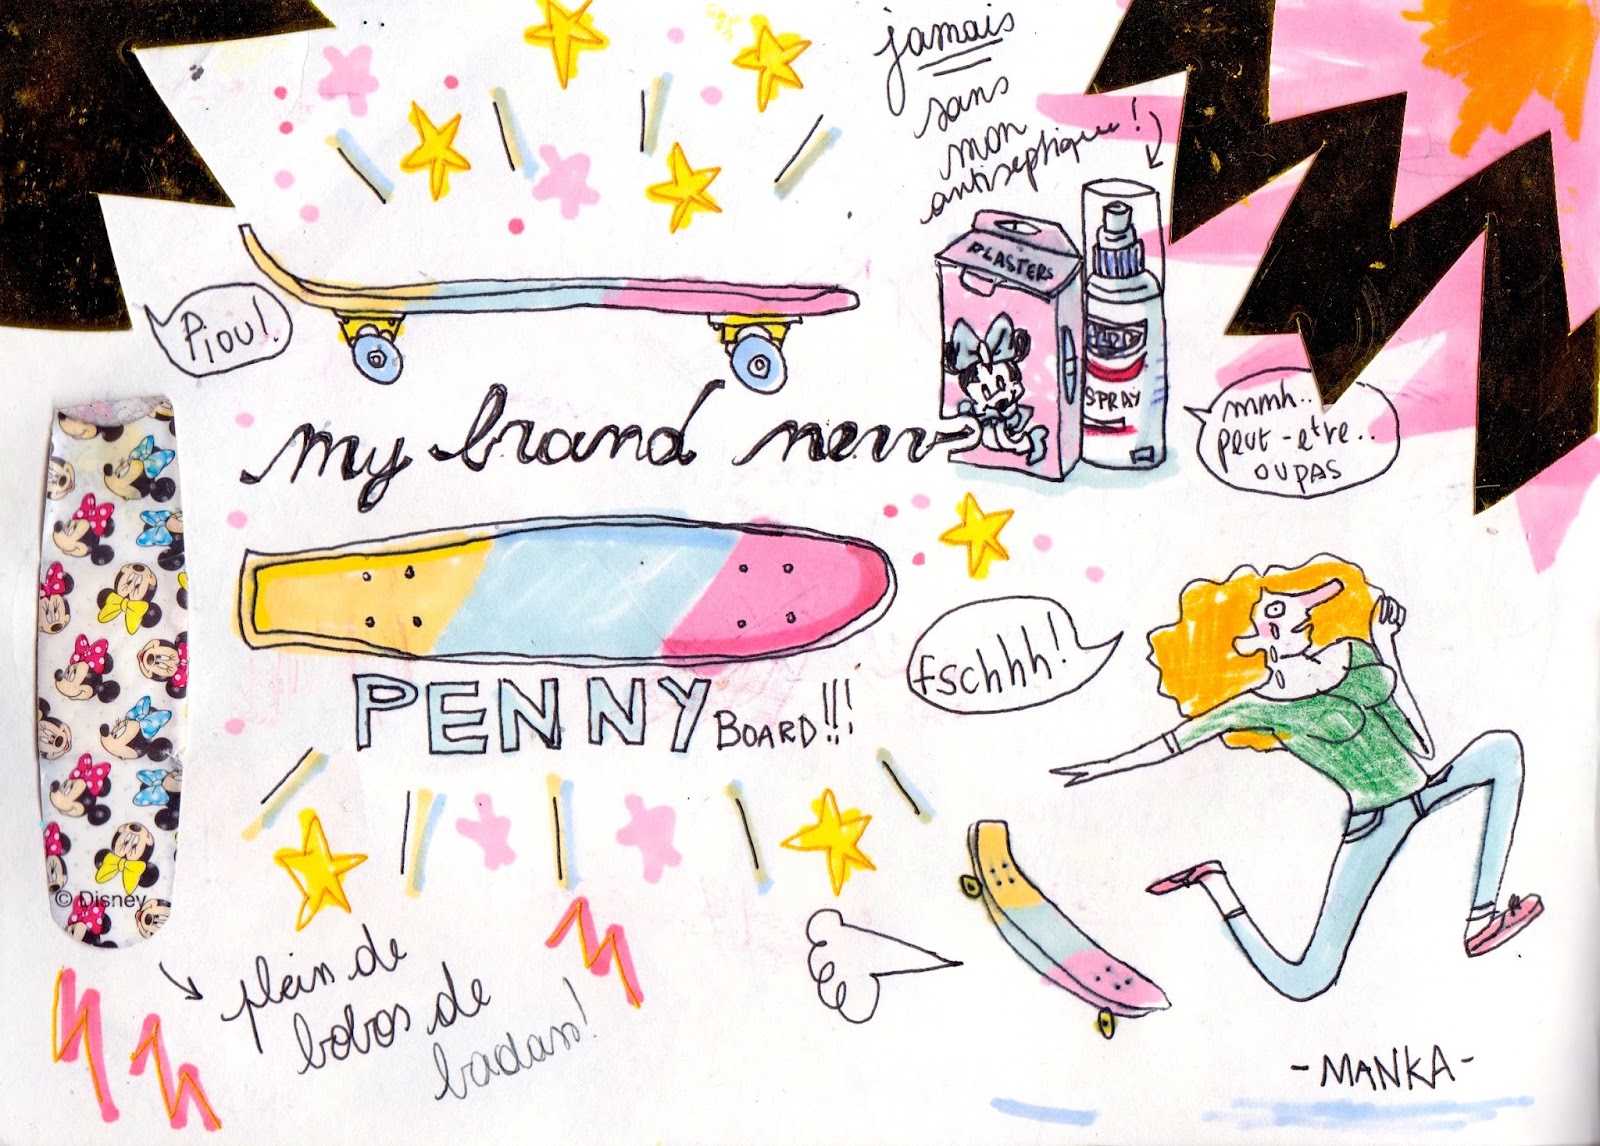 jamais
sans
mon
antiseptique!
PLASTERS
SPRAY
Piou!
my brand new
mmh..
peut-etre..
OUPAS
PENNY BOARD!!!
fschhh!
© Disney
plein de
bobos de
badass!
-MANKA-